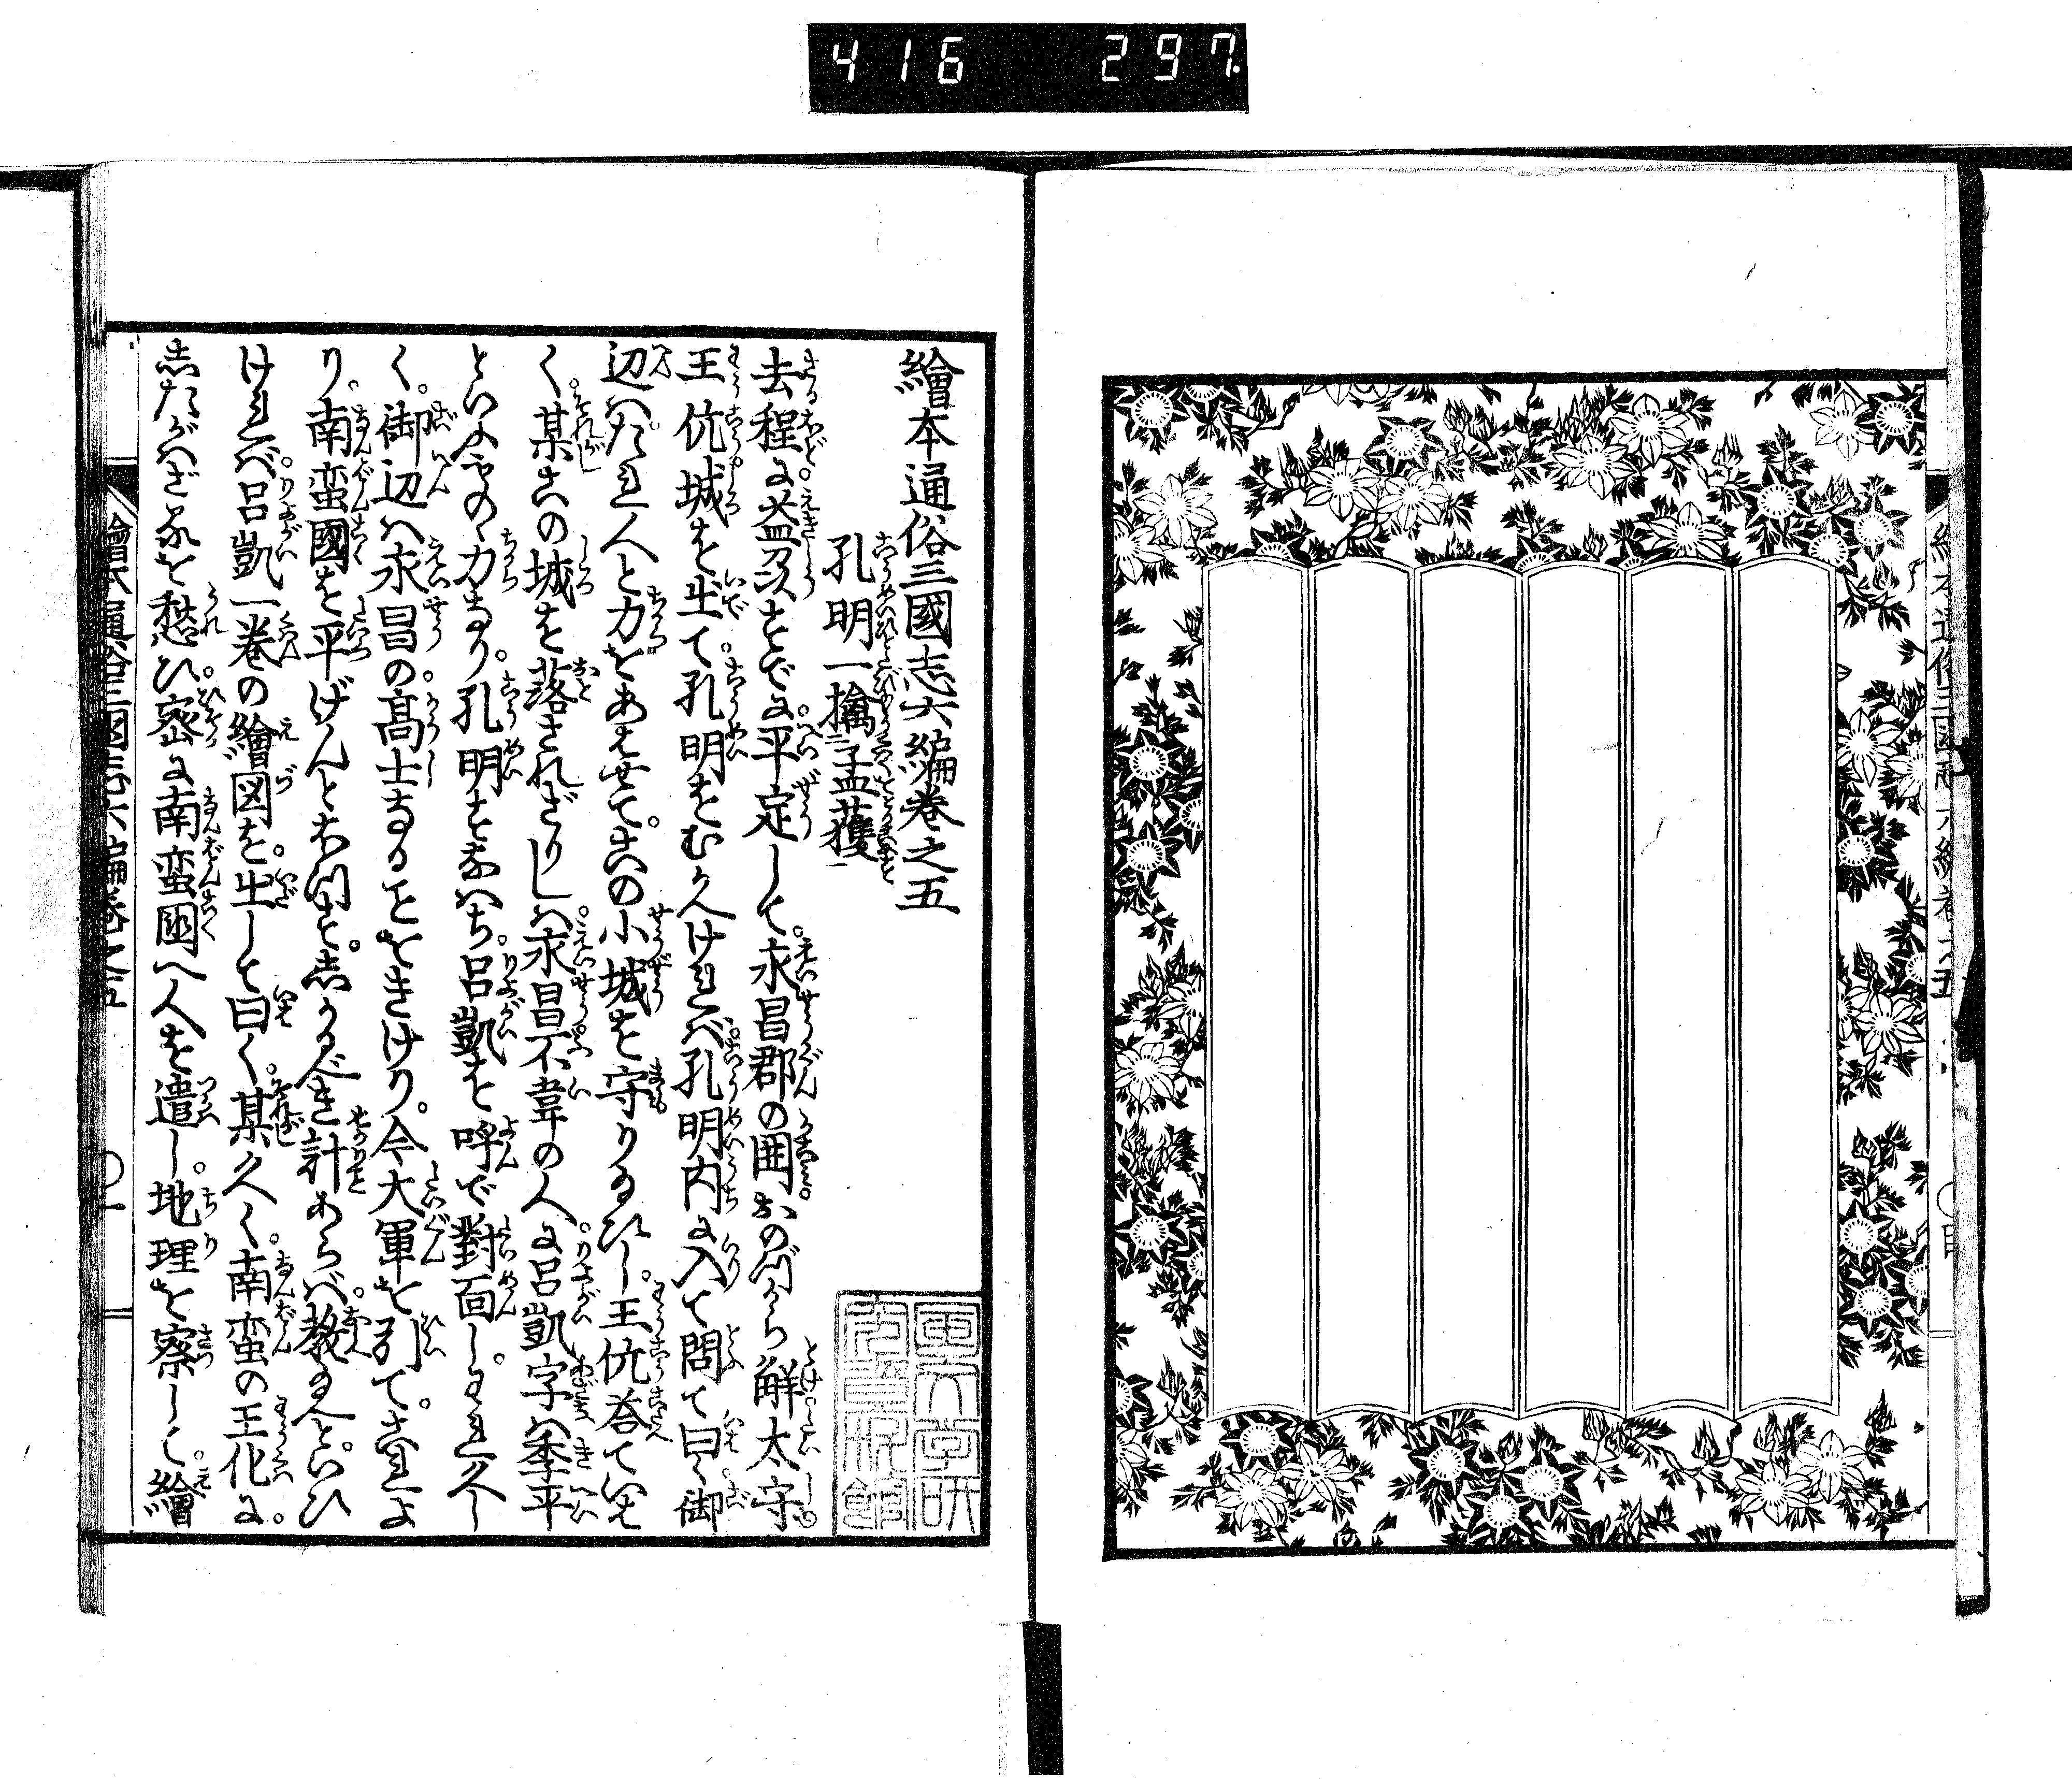 416 297
繪本通俗三國志六編卷之五
孔明一擒孟獲
去程に益州すでに平定して。永昌郡の囲おのづから解太守
王伉城を出て。孔明をむかへければ。孔明内に入て問て曰く御
辺はたれ人と力をあはせて。此の小城を守りるひし。王伉答ていはく
く。某此の城を落されざりしは。永昌不韋の人に呂凱字は季平
といふものゝ力なり。孔明すなはち。呂凱を呼で對面し。われ久し
く。御辺は永昌の高士なることをきけり。今大軍を引て。これよ
り。南蛮國を平げんとおもふ。志かるべき計あらば。教給へといひ
ければ。呂凱一巻の繪図を出して曰く。某久く。南蛮の王化に。
志たがへざるを愁ひ。密に南蛮國へ人を遣し。地理を察しく。繪
繪本通俗三國志六編卷之五 〇一